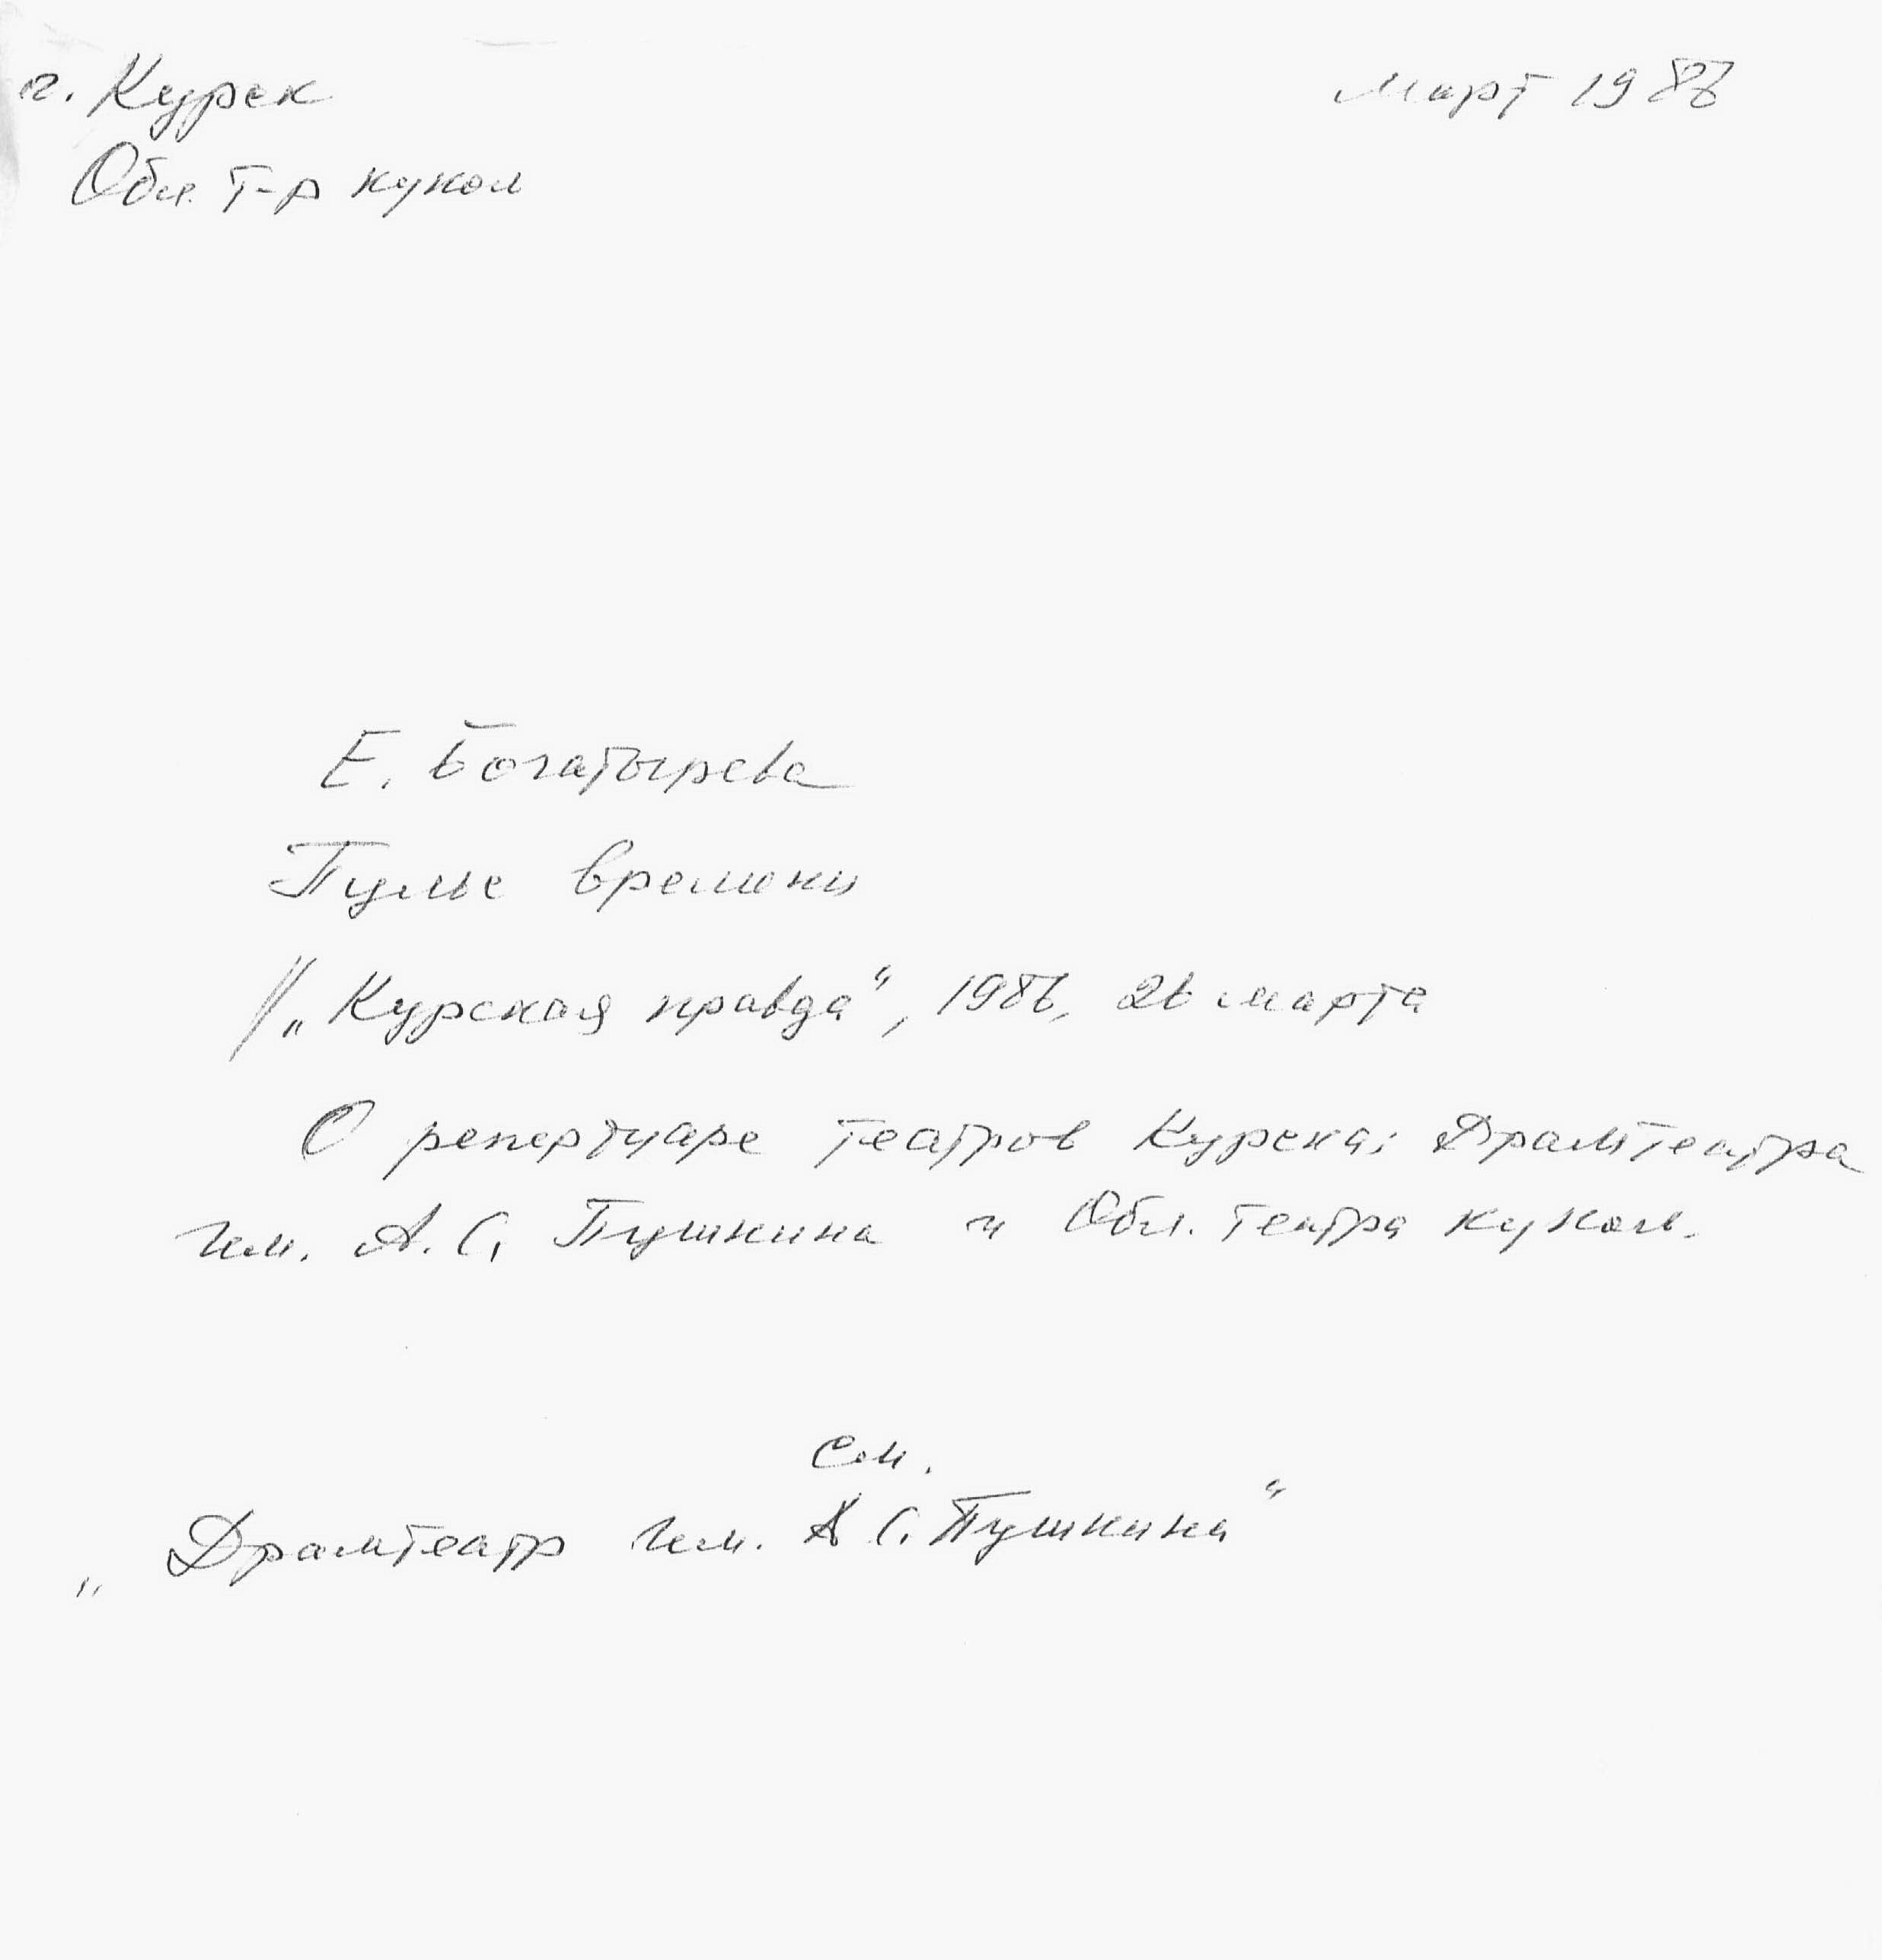 г. Курск
март 1986
Обл. т-р кукол
Е. Богатырева
Пульс времени
// „Курская правда“, 1986, 26 марта
О репертуаре театров Курска: Драмтеатра
им. А. С. Пушкина и Обл. театра кукол.
см.
„Драмтеатр им. А С. Пушкина“